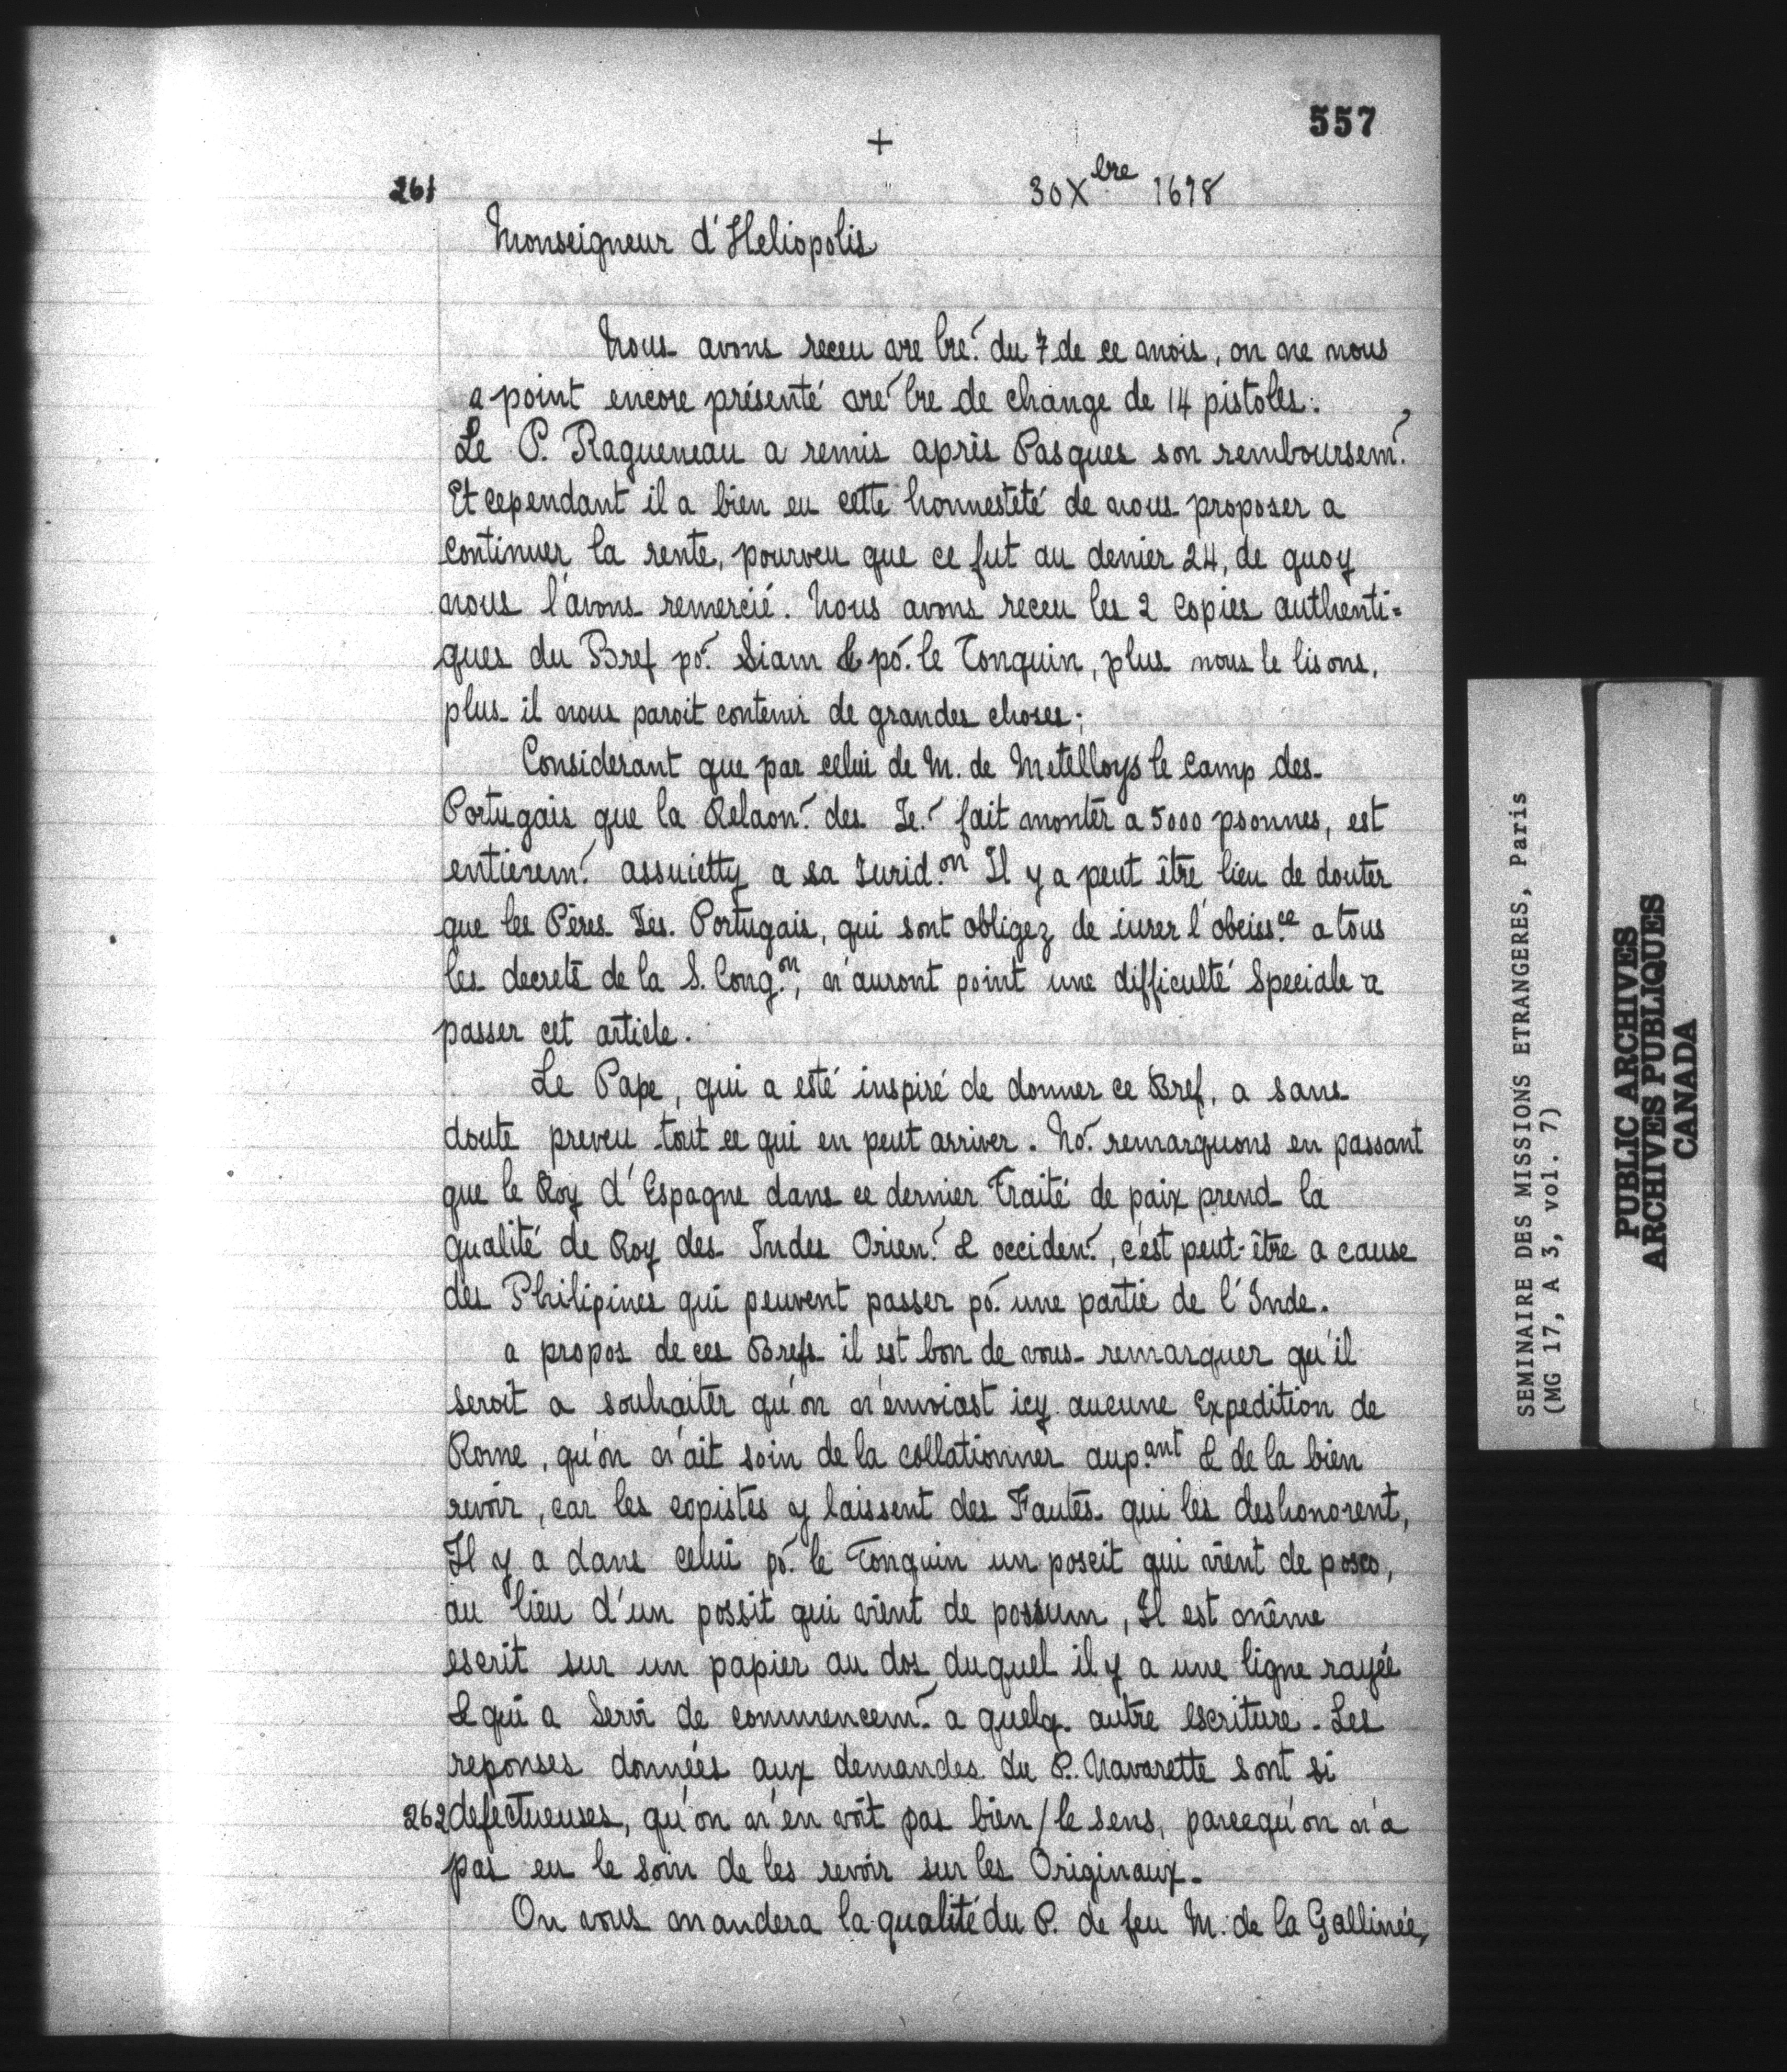 557
+
261
30 Xbre 1678
Monseigneur d'Heliopolis
Nous avons receu vre lre. du 7 de ce mois, on ne nous
a point encore présenté vre lre de change de 14 pistoles.
Le P. Ragueneau a remis après Pasques son remboursem.
Et cependant il a bien eu cette honnesteté de nous proposer a
continuer la rente, pourveu que ce fut au denier 24, de quoy
nous l'avons remercié. Nous avons receu les 2 copies authenti=
ques du Bref po. Siam & po. le Tonquin, plus nous le lisons,
plus il nous paroit contenir de grandes choses.
Considerant que par celui de M. de Metelloys le camp des
Portugais que la Relaon. des Je. fait monter a 5000 psonnes, est
entierem. assuietty a sa Jurid.on Il y a peut être lieu de douter
que les Pères Jés. Portugais, qui sont obligez de iurer l'obeiss.ce a tous
les decrets de la S. Cong.on, n'auront point une difficulté Speciale a
passer cet article.
Le Pape, qui a esté inspiré de donner ce Bref, a sans
doute preveu tout ce qui en peut arriver. No. remarquons en passant
que le Roy d'Espagne dans ce dernier Traité de paix prend la
qualité de Roy des Indes Orien. & occiden., c'est peut-être a cause
des Philipines qui peuvent passer po. une partie de l'Inde.
a propos de ces Brefs il est bon de vous remarquer qu'il
seroit a souhaiter qu'on n'envoiast icy aucune Expedition de
Rome, qu'on n'ait soin de la collationner aup.ant & de la bien
revoir, car les copistes y laissent des Fautes qui les deshonorent,
Il y a dans celui po. le Tonquin un poscit qui vient de posco,
au lieu d'un possit qui vient de possum, Il est même
escrit sur un papier au dos duquel il y a une ligne rayée
& qui a Servi de commencem. a quelq. autre escriture. Les
reponses données aux demandes du P. Navarette sont si
262 defectueuses, qu'on n'en voit pas bien / le sens, parcequ'on n'a
pas eu le soin de les revoir sur les Originaux.
On vous mandera la qualité du P. de feu M. de la Gallinée,
SEMINAIRE DES MISSIONS ETRANGERES, Paris
(MG 17, A 3, vol. 7)
PUBLIC ARCHIVES
ARCHIVES PUBLIQUES
CANADA